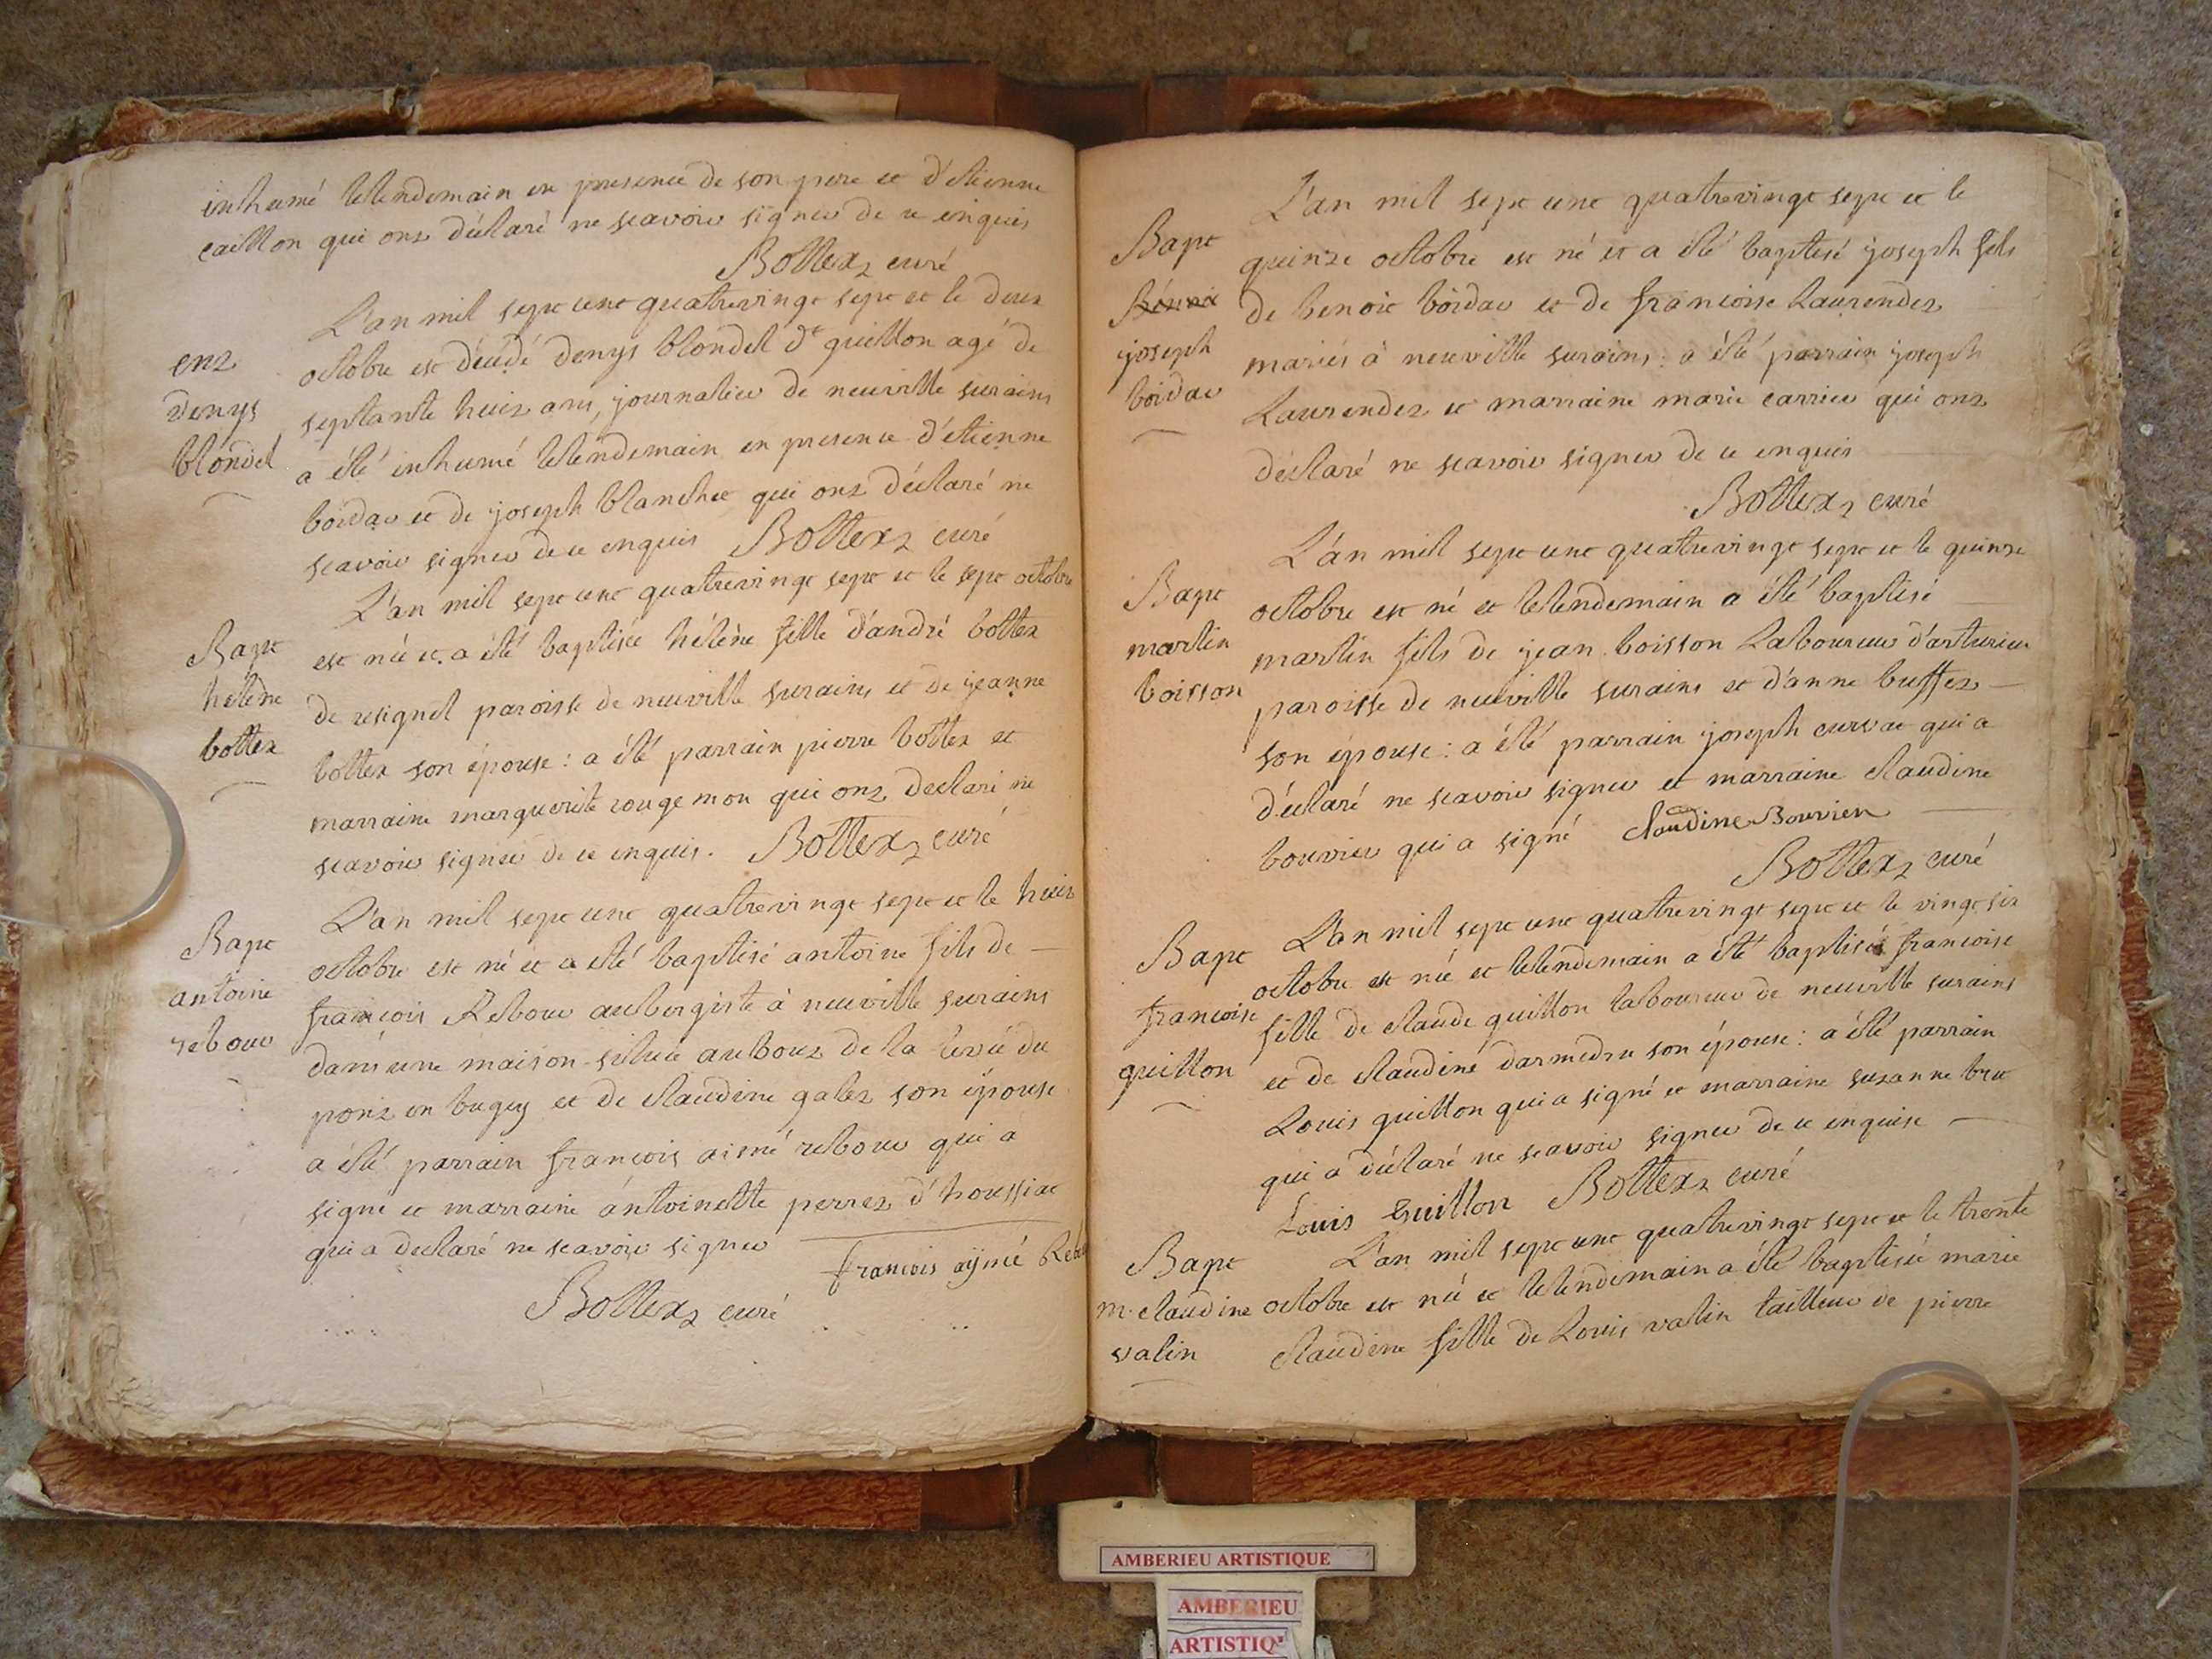 inhumé le lendemain en presence de son pere et d'etienne
caillon qui ont déclaré ne scavoir signer de ce enquis
Bottex curé
enz
denys
blondel
L'an mil sept cent quatrevingt sept et le deux
octobre est décédé denys blondel dt guillon agé de
septante huit ans, journalier de neuville surains
a été inhumé le lendemain en presence d'étienne
boidar et de joseph blanchet qui ont déclaré ne
scavoir signer de ce enquis Bottex curé
Bapt
hélène
bottex
L'an mil sept cent quatrevingt sept et le sept octobre
est née et a été baptisée hélène fille d'andré bottex
de resignel paroisse de neuville surains et de jeanne
bottex son épouse : a été parrain pierre bottex et
marraine marguerite rougemon qui ont declaré ne
scavoir signer de ce enquis. Bottex curé
Bapt
antoine
rebour
L'an mil sept cent quatrevingt sept et le huit
octobre est né et a été baptisé antoine fils de
francois Rebour aubergiste à neuville surains
dans une maison située au bout de la levée du
pont en bugey et de claudine galez son épouse
a été parrain francois aimé rebour qui a
signé et marraine antoinette perret d'houssiat
qui a declaré ne scavoir signer
francois aymé Reb
Bottex curé
Bapt
joseph
boidar
L'an mil sept cent quatrevingt sept et le
quinze octobre est né et a été baptisé joseph fils
de benoit boidar et de francoise Laurendez
mariés à neuville surains : a été parrain joseph
Laurendez et marraine marie carrier qui ont
déclaré ne scavoir signer de ce enquis
Bottex curé
Bapt
martin
boisson
L'an mil sept cent quatrevingt sept et le quinze
octobre est né et le lendemain a été baptisé
martin fils de jean boisson Laboureur d'arturieu
paroisse de neuville surains et d'anne buffet
son épouse : a été parrain joseph curvat qui a
déclaré ne scavoir signer et marraine claudine
bouvier qui a signé Claudine Bouvier
Bottex curé
Bapt
francoise
guillon
L'an mil sept cent quatrevingt sept et le vingt six
octobre est née et le lendemain a été baptisée francoise
fille de claude guillon laboureur de neuville surains
et de claudine darmedru son épouse : a été parrain
Louis guillon qui a signé et marraine suzanne brut
qui a déclaré ne scavoir signer de ce enquise
Louis Guillon Bottex curé
Bapt
m. claudine
valin
L'an mil sept cent quatrevingt sept et le trente
octobre est née et le lendemain a été baptisée marie
claudine fille de Louis valin tailleur de pierre
AMBERIEU ARTISTIQUE
AMBERIEU
ARTISTIQ